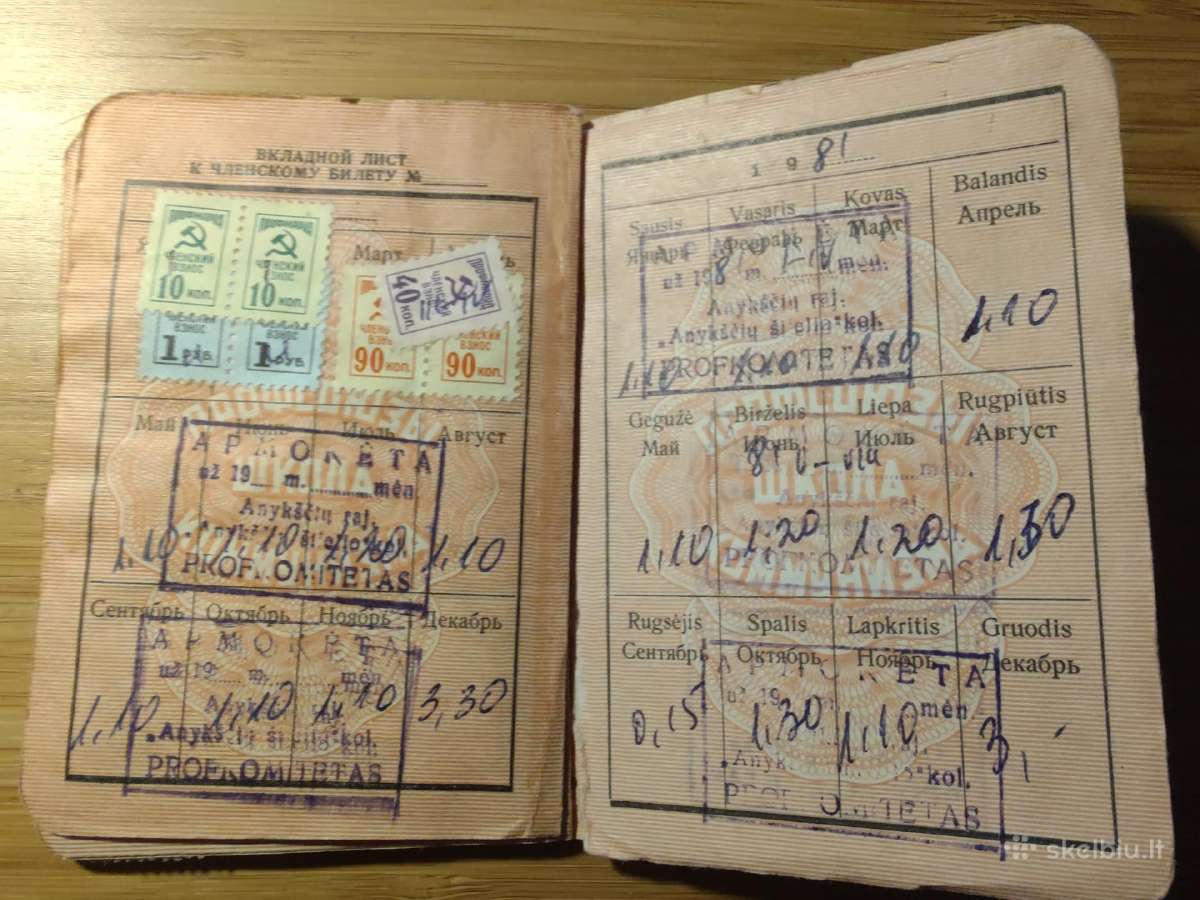 ВКЛАДНОЙ ЛИСТ
К ЧЛЕНСКОМУ БИЛЕТУ №
ЧЛЕНСКИЙ ВЗНОС 10 КОП.
ЧЛЕНСКИЙ ВЗНОС 10 КОП.
ВЗНОС 1 РУБ.
ВЗНОС 1 РУБ.
Март
40 КОП.
90 КОП.
ВЗНОС 90 КОП.
Май Июнь Июль Август
APMOKĖTA
už 19 m. mėn.
Anykščių raj.
kol.
PROFKOMITETAS
1,10 1,10 1,10
Сентябрь Октябрь Ноябрь Декабрь
APMOKĖTA
už 19 m. mėn.
„Anykščių šilelio“ kol.
PROFKOMITETAS
1,10 1,10 1,10 3,30
1981
Sausis Vasaris Kovas Balandis
Январь Февраль Март Апрель
už 198 m. mėn.
Anykščių raj.
„Anykščių šilelio“ kol.
PROFKOMITETAS
1,10 1,10 1,10
Gegužė Birželis Liepa Rugpiūtis
Май Июнь Июль Август
mėn.
raj.
kol.
PROFKOMITETAS
1,10 1,20 1,20 1,30
Rugsėjis Spalis Lapkritis Gruodis
Сентябрь Октябрь Ноябрь Декабрь
APMOKĖTA
už 19 mėn.
0,15 1,30 1,10 3,
„Anykščių kol.
PROFKOMITETAS
skelbiu.lt